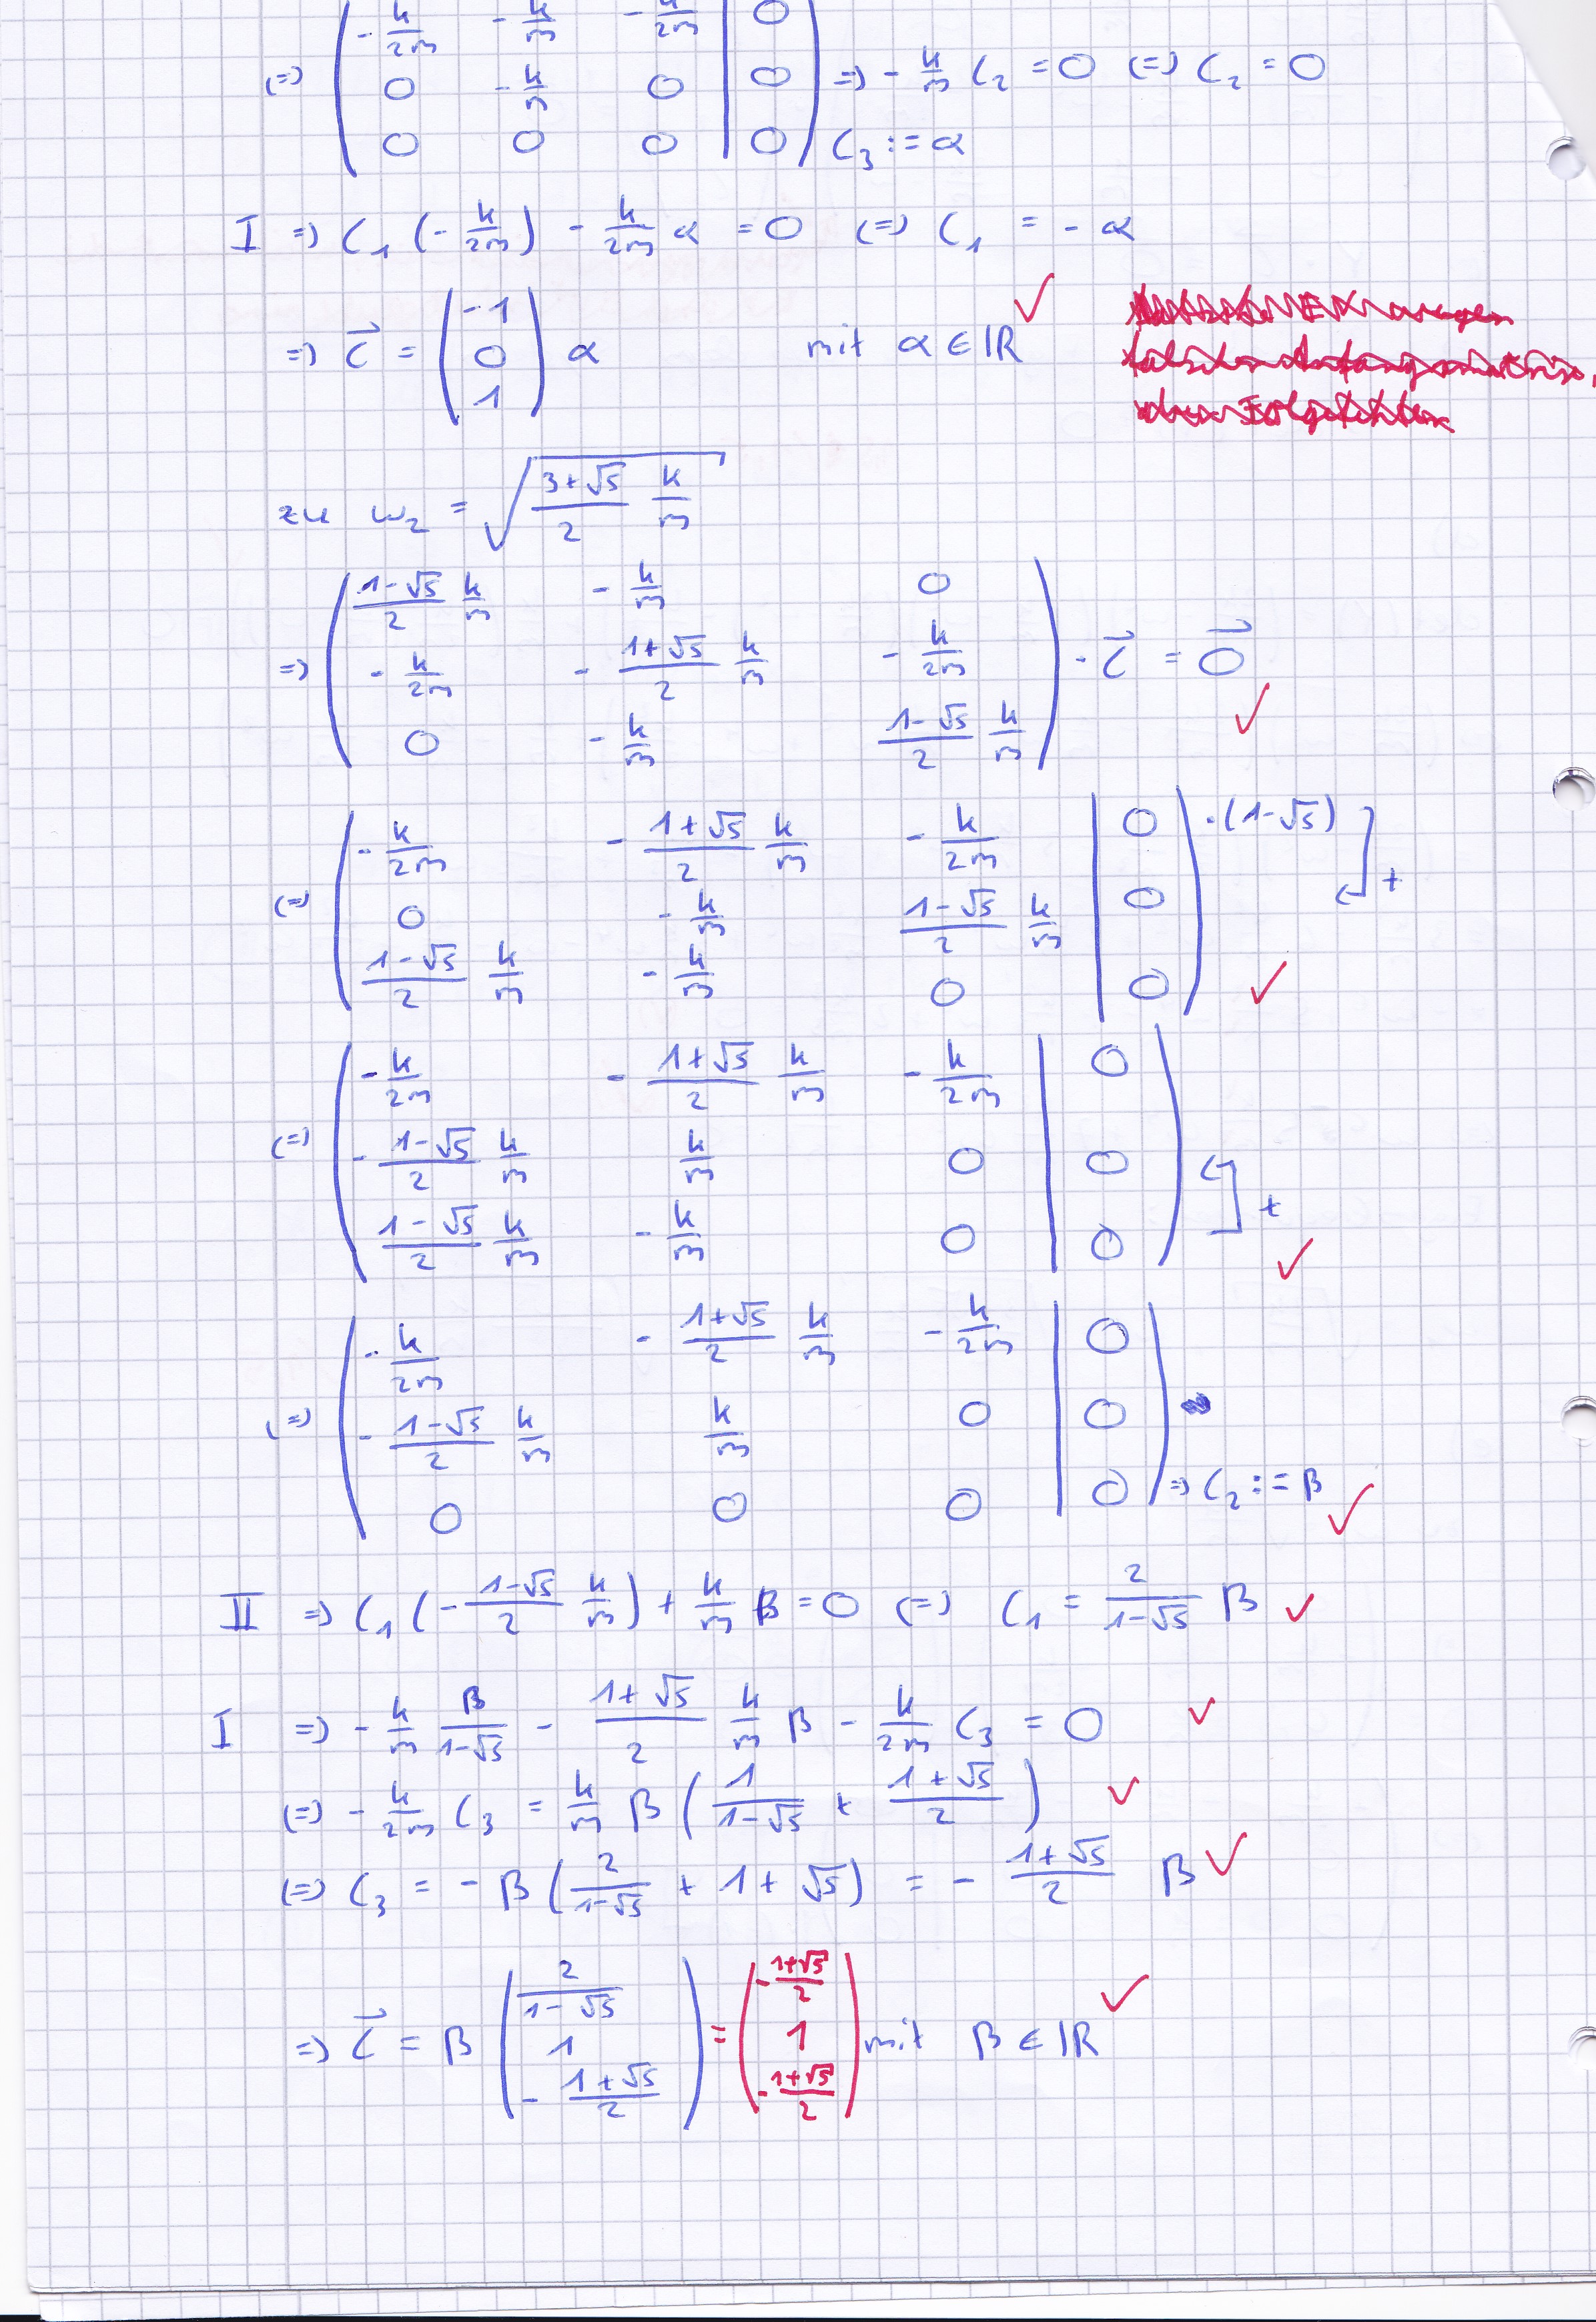 (=) ( -k/2m  -k/m  -k/2m | 0 )
( 0  -k/m  0 | 0 ) => -k/m C₂ = 0 (=) C₂ = 0
( 0  0  0 | 0 ) C₃ := α
I => C₁ (-k/2m) - k/2m α = 0 (=) C₁ = -α
=> C⃗ = ( -1 0 1 ) α mit α ∈ ℝ ✓
zu ω₂ = √( (3+√5)/2 k/m )
( (1-√5)/2 k/m  -k/m  0 )
=> ( -k/2m  -(1+√5)/2 k/m  -k/2m ) · C⃗ = 0⃗ ✓
( 0  -k/m  (1-√5)/2 k/m )
( -k/2m  -(1+√5)/2 k/m  -k/2m | 0 ) ·(1-√5)
(=) ( 0  -k/m  (1-√5)/2 k/m | 0 ) +
( (1-√5)/2 k/m  -k/m  0 | 0 ) ✓
( -k/2m  -(1+√5)/2 k/m  -k/2m | 0 )
(=) ( -(1-√5)/2 k/m  k/m  0 | 0 )
( (1-√5)/2 k/m  -k/m  0 | 0 ) + ✓
( -k/2m  -(1+√5)/2 k/m  -k/2m | 0 )
(=) ( -(1-√5)/2 k/m  k/m  0 | 0 )
( 0  0  0 | 0 ) => C₂ := β ✓
II => C₁ (-(1-√5)/2 k/m) + k/m β = 0 (=) C₁ = 2/(1-√5) β ✓
I => -k/m β/(1-√5) - (1+√5)/2 k/m β - k/2m C₃ = 0 ✓
(=) -k/2m C₃ = k/m β ( 1/(1-√5) + (1+√5)/2 ) ✓
(=) C₃ = -β ( 2/(1-√5) + 1 + √5 ) = -(1+√5)/2 β ✓
=> C⃗ = β ( 2/(1-√5) 1 -(1+√5)/2 ) = ( -(1+√5)/2 1 -(1+√5)/2 ) mit β ∈ ℝ ✓